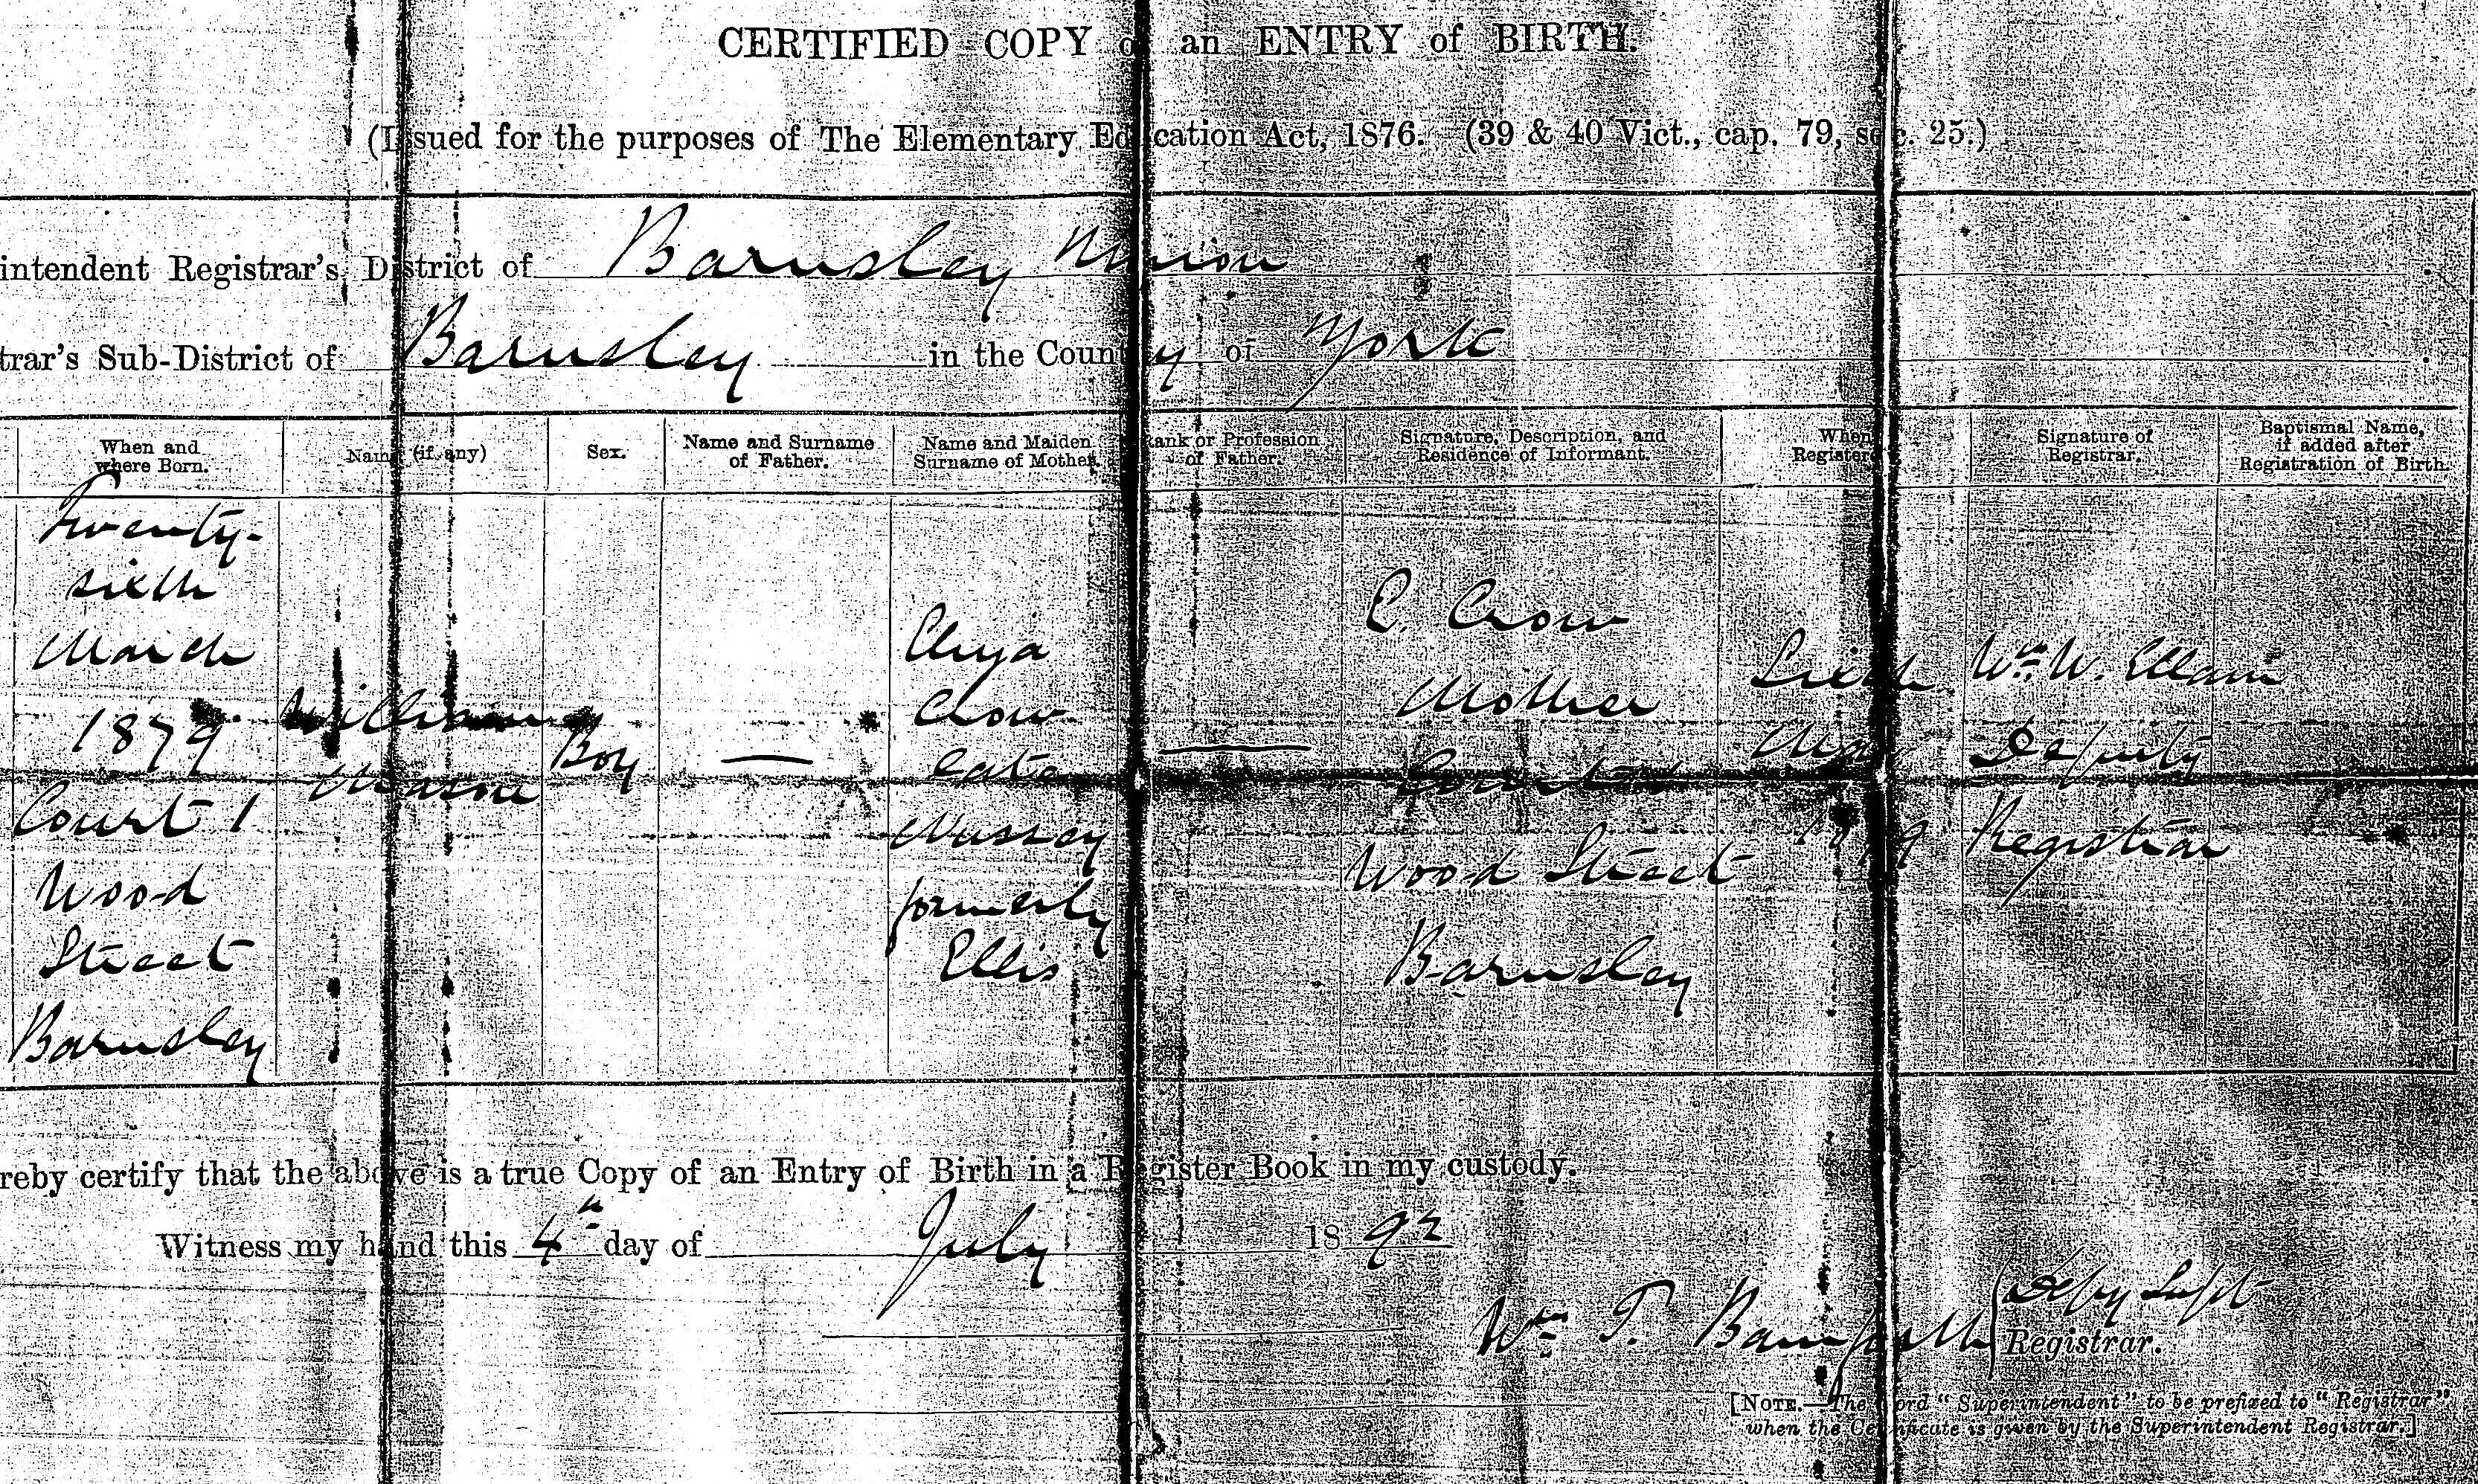 CERTIFIED COPY of an ENTRY of BIRTH.
(Issued for the purposes of The Elementary Education Act, 1876. (39 & 40 Vict., cap. 79, sec. 25.)
intendent Registrar's District of Barnsley Union
trar's Sub-District of Barnsley in the County of York
When and where Born.
Name (if any)
Sex.
Name and Surname of Father.
Name and Maiden Surname of Mother.
Rank or Profession of Father.
Signature, Description, and Residence of Informant.
When Registered
Signature of Registrar.
Baptismal Name, if added after Registration of Birth.
Twenty-
sixth
March
1879
Court 1
Wood
Street
Barnsley
William
Boy
—
Eliza
Crow
late
Mussey
formerly
Ellis
—
E. Crow
Mother
Court 1
Wood Street
Barnsley
Sixth
May
1879
Wm. W. Ellam
Deputy
Registrar
reby certify that the above is a true Copy of an Entry of Birth in a Register Book in my custody.
Witness my hand this 4th day of July 1892
Wm. T. Bamforth Depy Supt
Registrar.
[NOTE.—The word "Superintendent" to be prefixed to "Registrar"
when the Certificate is given by the Superintendent Registrar.]